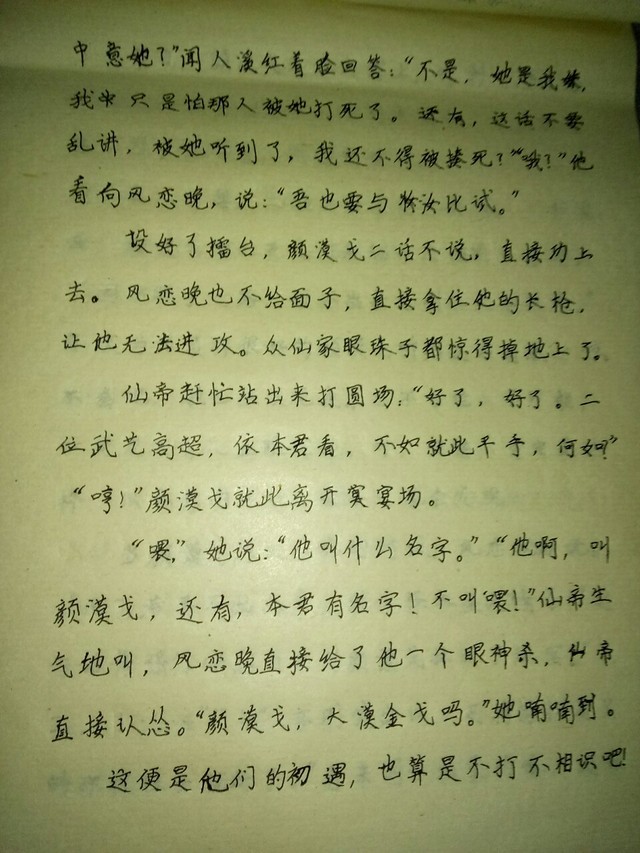 中意她？”闻人溪红着脸回答：“不是，她是我妹，
我只是怕那人被她打死了。还有，这话不要
乱讲，被她听到了，我还不得被揍死？”“哦？”他
看向风恋晚，说：“吾也要与汝比试。”
设好了擂台，颜漠戈二话不说，直接功上
去。风恋晚也不给面子，直接拿住他的长枪，
让他无法进攻。众仙家眼珠子都惊得掉地上了。
仙帝赶忙站出来打圆场：“好了，好了。二
位武艺高超，依本君看，不如就此平手，何如？”
“哼！”颜漠戈就此离开宴场。
“喂，”她说：“他叫什么名字。”“他啊，叫
颜漠戈，还有，本君有名字！不叫‘喂！’”仙帝生
气地叫，风恋晚直接给了他一个眼神杀，仙帝
直接认怂。“颜漠戈，大漠金戈吗。”她喃喃到。
这便是他们的初遇，也算是不打不相识吧！